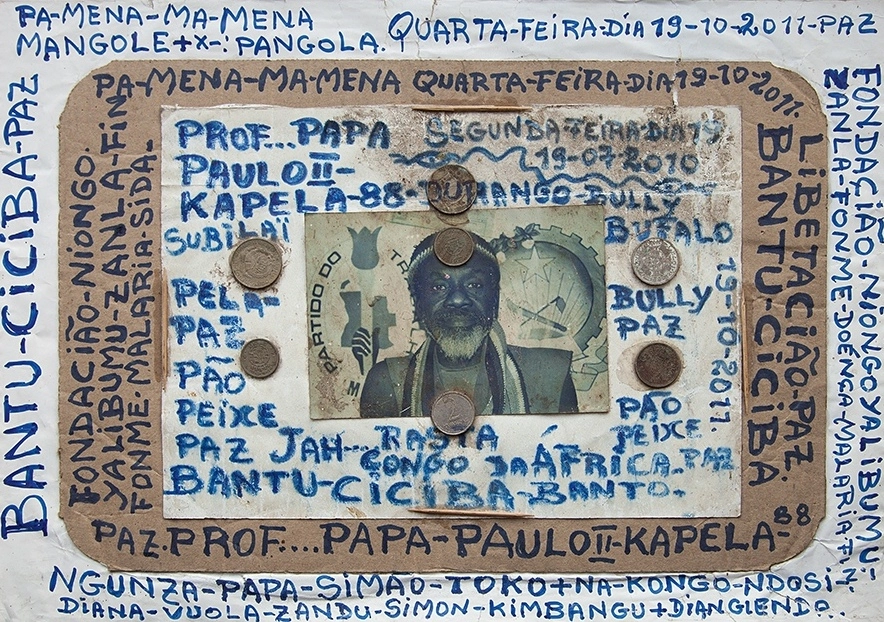 PA-MENA-MA-MENA
MANGOLE+X-:PANGOLA.
QUARTA-FEIRA-DIA 19-10-2011-PAZ
BANTU-CICIBA-PAZ
FONDACIÃO-NIONGO YALIBUMU-
ZANLA-FONME-DOÉNGA-MALARIA-FIN.
PA-MENA-MA-MENA QUARTA-FEIRA-DIA 19-10-2011.
FONDACIÃO-NIONGO.
YALIBUMU-ZANLA-FIN
FONME-MALARIA-SIDA-
LIBETACIÃO-PAZ.
BANTU-CICIBA
PROF...PAPA
PAULO II-
KAPELA-88-DUHANGO
SEGUNDA-FEIRA-DIA 19
19-07-2010
BULLY
BUFALO
SUBILAÏ
PELA-
PAZ
PÃO
PEIXE
PARTIDO DO
TRA
M
BULLY
PAZ
PÃO
PEIXE
19-10-2011.
PAZ JAH...RASTA
CONGO DA ÁFRICA.PAZ
BANTU-CICIBA-BANTO.
PAZ.PROF:...PAPA-PAULO II-KAPELA-88
NGUNZA-PAPA-SIMÃO-TOKO+NA-KONGO-NDOSI-
DIANA-VUOLA-ZANDU-SIMON-KIMBANGU+DIANGIENDA..